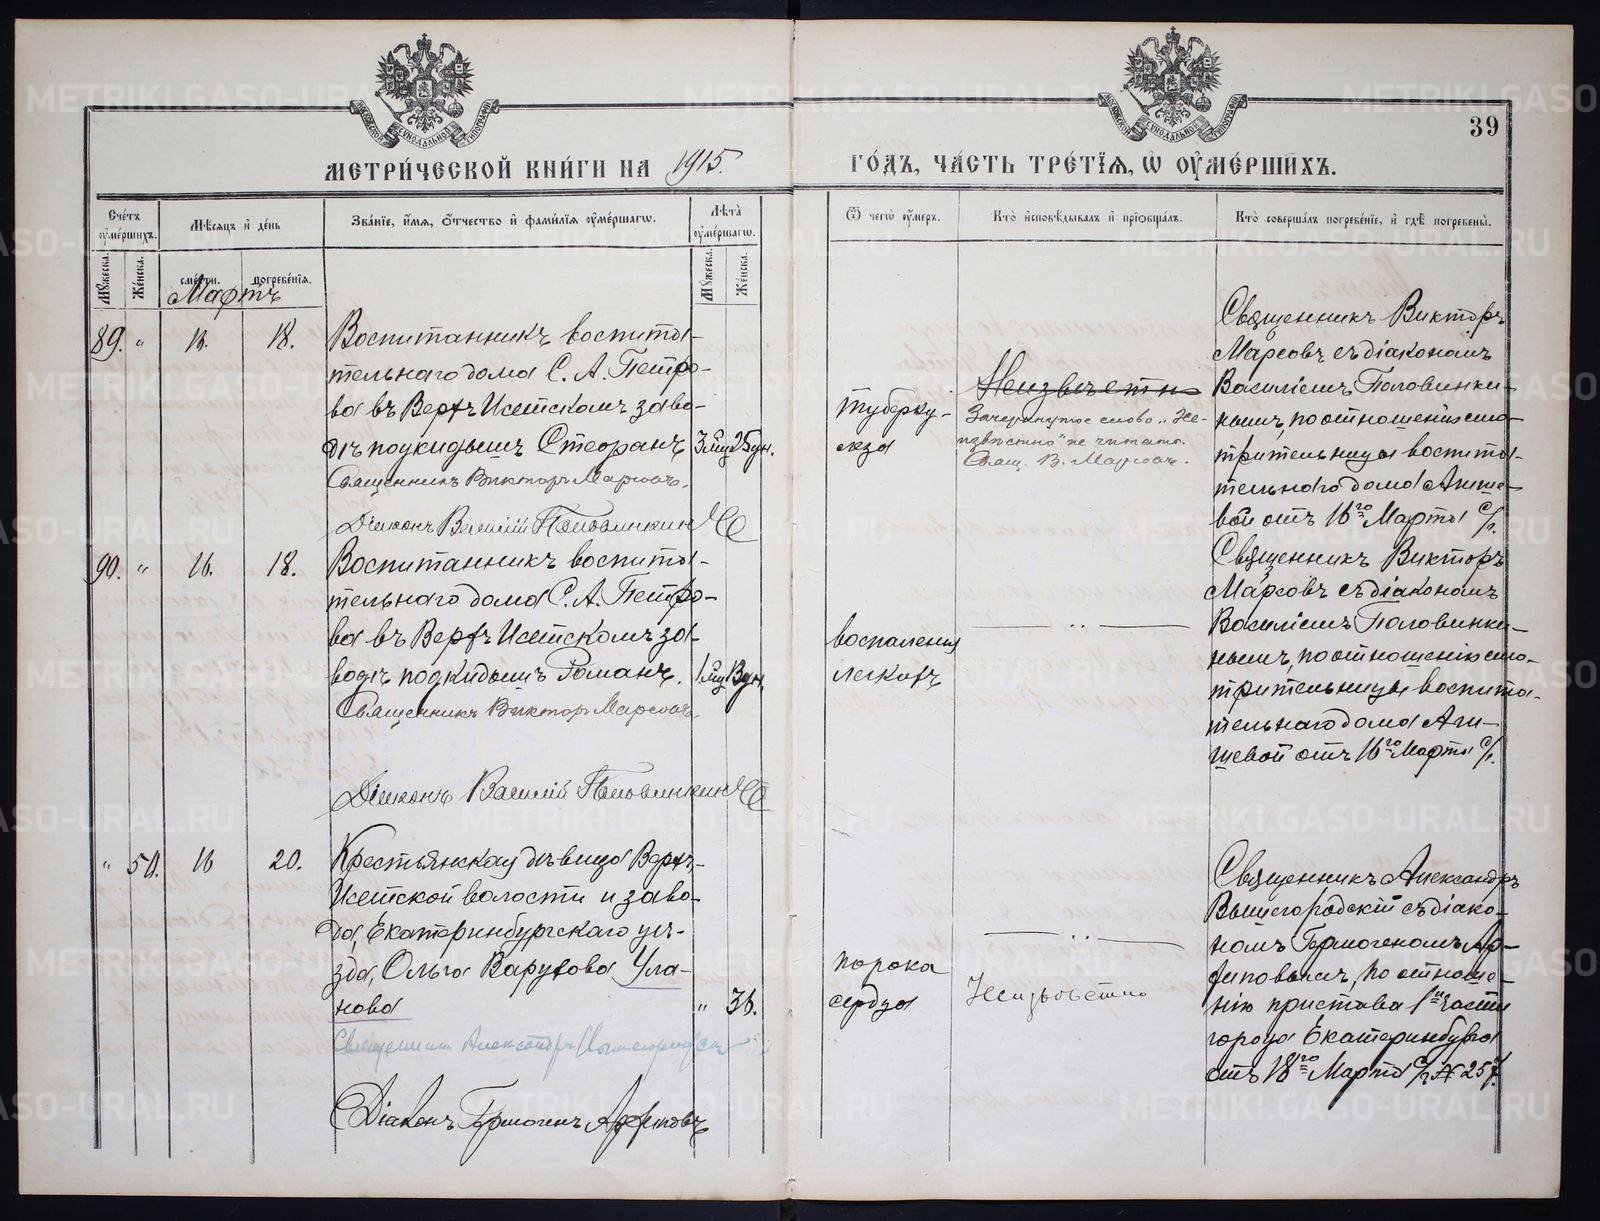 39
МЕТРИ́ЧЕСКОЙ КНИ́ГИ НА 1915.
ГО́ДЪ, ЧА́СТЬ ТРЕ́ТЇѦ, Ѡ ОУ҆МЕ́РШИХЪ.
Сче́тъ оу҆ме́ршихъ.
Мѣсяцъ и҆ де́нь
Зва́нїе, и҆́мя, ѻ҆́тчество и҆ фами́лїя оу҆ме́ршагѡ.
Лѣта̀ оу҆ме́ршагѡ.
Ѿ чегѡ̀ оу҆́меръ.
Кто̀ и҆сповѣ́дывалъ и҆ прїѡбща́лъ.
Кто̀ соверша́лъ погребе́нїе, и҆ гдѣ̀ погребены̀.
Му́жеска.
Же́нска.
сме́рти.
погребе́нїя.
Му́жеска.
Же́нска.
Мартъ
89. " 16. 18.
Воспитанникъ воспита-
тельнаго дома С. А. Петро-
ва въ Верхъ Исетскомъ заво-
дѣ подкидышъ Стефанъ 3 мц 25 дн.
Священникъ Викторъ Марсовъ.
Діаконъ Василій Половинкинъ
туберку-
леза
Неизвѣстно
Зачеркнутое слово "Не-
извѣстно" не читать.
Свящ. В. Марсовъ.
Священникъ Викторъ
Марсовъ съ діакономъ
Василіемъ Половинки-
нымъ, по отношенію смо-
трительницы воспита-
тельнаго дома Агише-
вой отъ 16го Марта с/г.
90. " 16. 18.
Воспитанникъ воспита-
тельнаго дома С. А. Петро-
ва въ Верхъ Исетскомъ за-
водѣ подкидышъ Романъ. 1 мц 13 дн.
Священникъ Викторъ Марсовъ.
Діаконъ Василій Половинкинъ
воспаленія
легкихъ
— " —
Священникъ Викторъ
Марсовъ съ діакономъ
Василіемъ Половинки-
нымъ, по отношенію смо-
трительницы воспита-
тельнаго дома Аги-
шевой отъ 16го Марта с/г.
" 50. 16 20.
Крестьянская дѣвица Верхъ-
Исетской волости и заво-
да, Екатеринбургскаго уѣ-
зда, Ольга Варуфова Ула-
нова " 36.
Священникъ Александръ Вышегородскій
Діаконъ Гермогенъ Архиповъ
порока
сердца
— " —
Неизвѣстно
Священникъ Александръ
Вышегородскій съ діако-
номъ Гермогеномъ Ар-
хиповымъ, по отноше-
нію пристава 1й части
города Екатеринбурга
отъ 18го Марта с/г № 257.